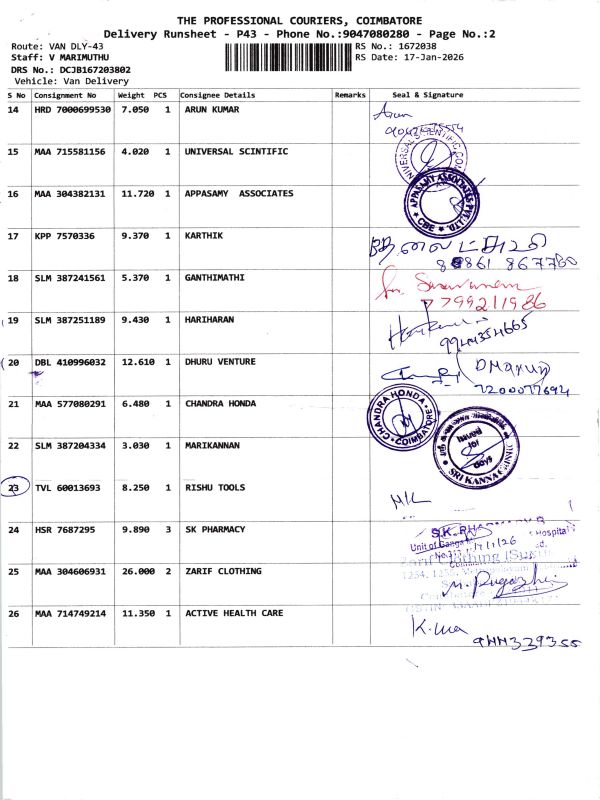 THE PROFESSIONAL COURIERS, COIMBATORE
Delivery Runsheet - P43 - Phone No.:9047080280 - Page No.:2
Route: VAN DLY-43
Staff: V MARIMUTHU
DRS No.: DCJB167203802
Vehicle: Van Delivery
RS No.: 1672038
RS Date: 17-Jan-2026
S No Consignment No Weight PCS Consignee Details Remarks Seal & Signature
14 HRD 7000699530 7.050 1 ARUN KUMAR
Arun
15 MAA 715581156 4.020 1 UNIVERSAL SCINTIFIC
UNIVERSAL SCIENTIFIC COM
16 MAA 304382131 11.720 1 APPASAMY ASSOCIATES
APPASAMY ASSOCIATES PVT. LTD. CBE
17 KPP 7570336 9.370 1 KARTHIK
18 SLM 387241561 5.370 1 GANTHIMATHI
Saravanan
7799211986
19 SLM 387251189 9.430 1 HARIHARAN
9944354665
20 DBL 410996032 12.610 1 DHURU VENTURE
7200077694
21 MAA 577080291 6.480 1 CHANDRA HONDA
CHANDRA HONDA COIMBATORE
22 SLM 387204334 3.030 1 MARIKANNAN
Issued for days
SRI KANNA CLINIC
23 TVL 60013693 8.250 1 RISHU TOOLS
N/L
24 HSR 7687295 9.890 3 SK PHARMACY
S.K. PHARMACY
Unit of Ganga Hospital
17/1/26
25 MAA 304606931 26.000 2 ZARIF CLOTHING
Zarif Clothing
M. Pugazhe
26 MAA 714749214 11.350 1 ACTIVE HEALTH CARE